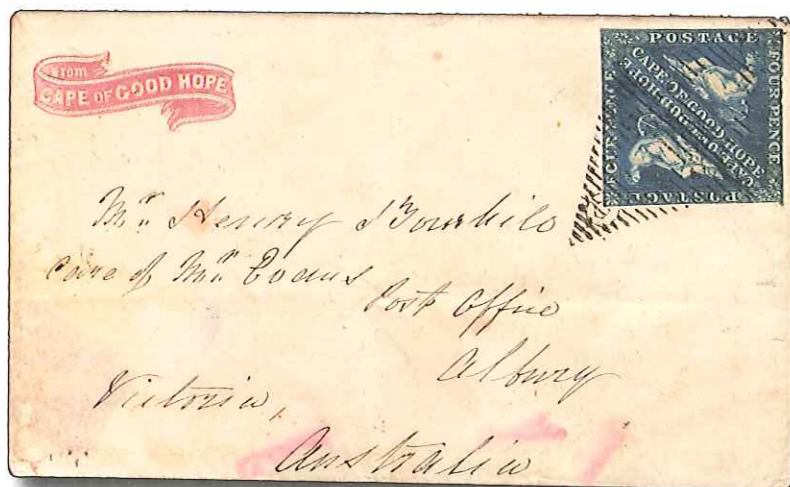 From
CAPE OF GOOD HOPE
POSTAGE
FOUR PENCE
CAPE OF GOOD HOPE
CAPE OF GOOD HOPE
FOUR PENCE
POSTAGE
Mr. Henry
Care of Mr. Evans
Post Office
Albury
Victoria,
Australia